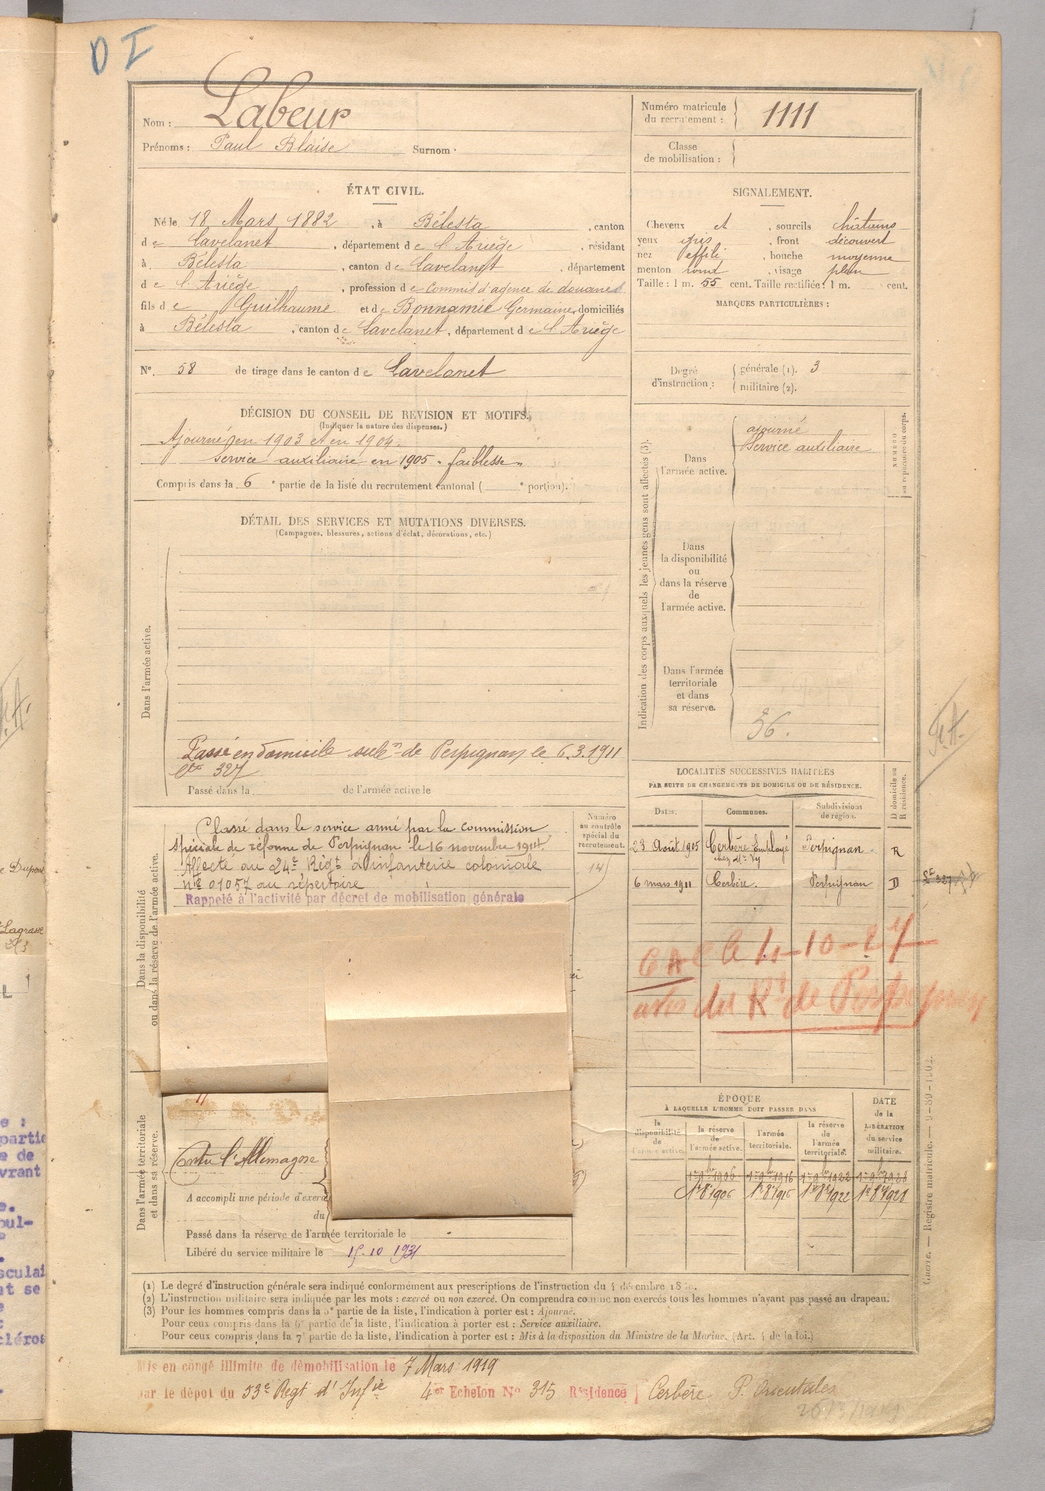 D I
Nom : Labeur
Prénoms : Paul Blaise Surnom :
Numéro matricule du recrutement : 1111
Classe de mobilisation :
ÉTAT CIVIL.
Né le 18 Mars 1882, à Bélesta, canton
de Lavelanet, département de l'Ariège, résidant
à Bélesta, canton de Lavelanet, département
de l'Ariège, profession de commis d'agence de douanes
fils de Guilhaume et de Bonnamie Germaine, domiciliés
à Bélesta, canton de Lavelanet, département de l'Ariège
SIGNALEMENT.
Cheveux et, sourcils châtains
yeux gris, front découvert
nez effilé, bouche moyenne
menton rond, visage plein
Taille : 1 m. 55 cent. Taille rectifiée : 1 m. cent.
MARQUES PARTICULIÈRES :
N°. 58 de tirage dans le canton de Lavelanet
Degré d'instruction : générale (1). 3
militaire (2).
DÉCISION DU CONSEIL DE REVISION ET MOTIFS.
(Indiquer la nature des dispenses.)
Ajourné en 1903 et en 1904.
Service auxiliaire en 1905 - faiblesse -
Compris dans la 6e partie de la liste du recrutement cantonal ( e portion).
DÉTAIL DES SERVICES ET MUTATIONS DIVERSES.
(Campagnes, blessures, actions d'éclat, décorations, etc.)
Dans l'armée active.
Passé en domicile subn de Perpignan le 6.3.1911
327
Passé dans la de l'armée active le
Indication des corps auxquels les jeunes gens sont affectés (3).
NUMÉRO au répertoire du corps.
Dans l'armée active.
ajourné
Service auxiliaire
Dans la disponibilité ou dans la réserve de l'armée active.
Dans l'armée territoriale et dans sa réserve.
36.
LOCALITÉS SUCCESSIVES HABITÉES
PAR SUITE DE CHANGEMENTS DE DOMICILE OU DE RÉSIDENCE.
Dates. Communes. Subdivisions de région. D domicile ou R résidence.
23 Août 1905 Cerbère Employé chez Perpignan R
6 mars 1911 Cerbère. Perpignan D
Dans la disponibilité ou dans la réserve de l'armée active.
Numéro au contrôle spécial du recrutement.
Classé dans le service armé par la commission
spéciale de réforme de Perpignan le 16 novembre 1914
Affecté au 24e Régt d'infanterie coloniale
01057 au répertoire
Rappelé à l'activité par décret de mobilisation générale
le 4-10-27
avis du Rt de Perpignan
Dans l'armée territoriale et dans sa réserve.
Contre l'Allemagne
A accompli une période d'exerci
du
Passé dans la réserve de l'armée territoriale le
Libéré du service militaire le 15.10 1931
ÉPOQUE
À LAQUELLE L'HOMME DOIT PASSER DANS
la disponibilité de l'armée active. la réserve de l'armée active. l'armée territoriale. la réserve de l'armée territoriale. DATE de la LIBÉRATION du service militaire.
1r 8e 1906 1r 8e 1916 1r 8e 1922 1r 8e 1928
(1) Le degré d'instruction générale sera indiqué conformément aux prescriptions de l'instruction du 4 décembre
(2) L'instruction militaire sera indiquée par les mots : exercé ou non exercé. On comprendra comme non exercés tous les hommes n'ayant pas passé au drapeau.
(3) Pour les hommes compris dans la 5e partie de la liste, l'indication à porter est : Ajourné.
Pour ceux compris dans la 6e partie de la liste, l'indication à porter est : Service auxiliaire.
Pour ceux compris dans la 7e partie de la liste, l'indication à porter est : Mis à la disposition du Ministre de la Marine. (Art. 4 de la loi.)
Guerre. — Registre matricule. —
Mis en congé illimité de démobilisation le 7 Mars 1919
par le dépôt du 53e Regt d'Infie 4e Echelon No 315 Résidence Cerbère P. Orientales